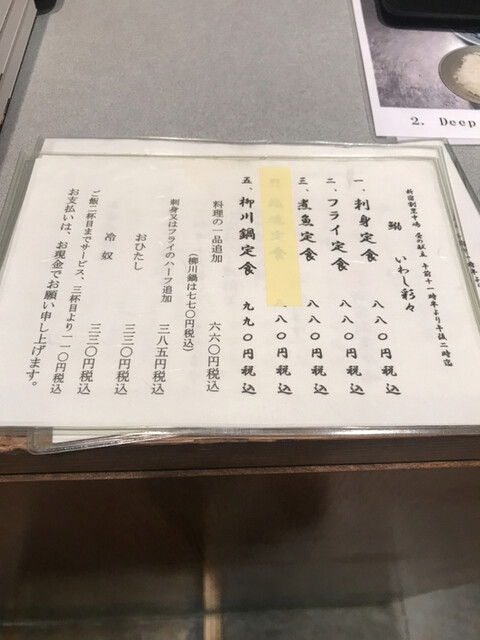 新宿割烹中嶋 昼の献立 午前十一時半より午後二時迄
鰯 いわし彩々
一、刺身定食 八八〇円税込
二、フライ定食 八八〇円税込
三、煮魚定食 八八〇円税込
八八〇円税込
五、柳川鍋定食 九九〇円税込
料理の一品追加 六六〇円税込
(柳川鍋は七七〇円税込)
刺身又はフライのハーフ追加 三八五円税込
おひたし 三三〇円税込
冷奴 三三〇円税込
ご飯二杯目までサービス、三杯目より一一〇円税込
お支払いは、お現金でお願い申し上げます。
2. Deep